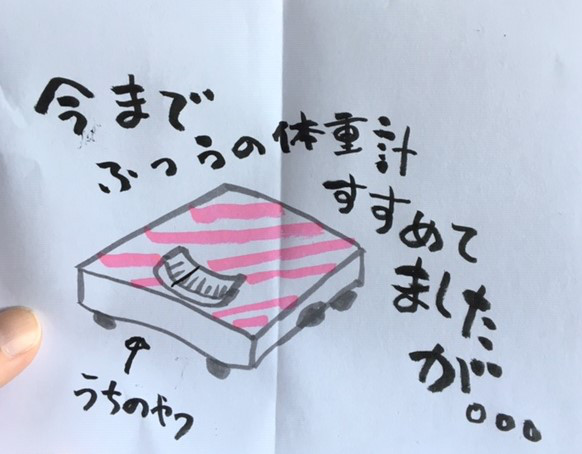 今まで
ふつうの体重計
すすめて
ました
が…
うちのやつ